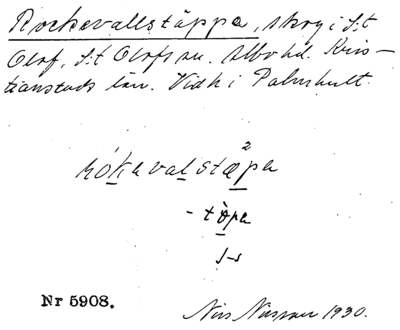 Rockevallstäppa, skog i S:t
Olof, S:t Olofs sn. Albo hd. Kris-
tianstads län. Vidh i Palmhult.
2
rókavalstæpa
- tòpa
Nr 5908.
Nils Nilsson 1930.